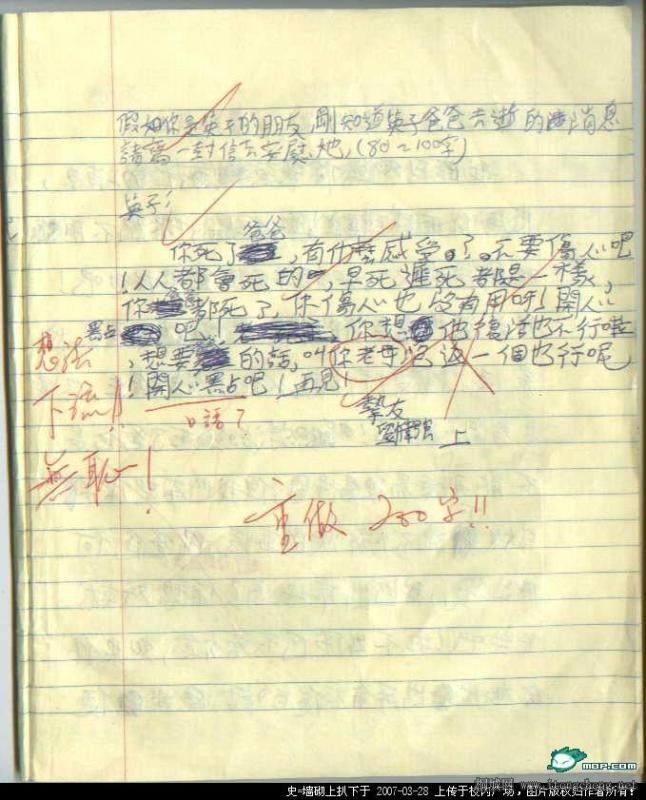 假如你是英子的朋友,剛知道英子爸爸去逝的消息
請寫一封信去安慰她,(80~100字)
英子:
爸爸
你死了,有什麼感受。了。不要傷心吧
!人人都會死的,早死遲死都是一樣,
你都死了,你傷心也沒有用呀!開心
點吧,你想他復活也不行啦
,想要的話,叫你老母包返一個也行呢
!開心點吧!再見!
摯友
劉偉強 上
想法
下流!!
無恥!
口語?
重做 200字!!
mop.com
史-墙砌上扒下于 2007-03-28 上传于校内广场,图片版权归作者所有!